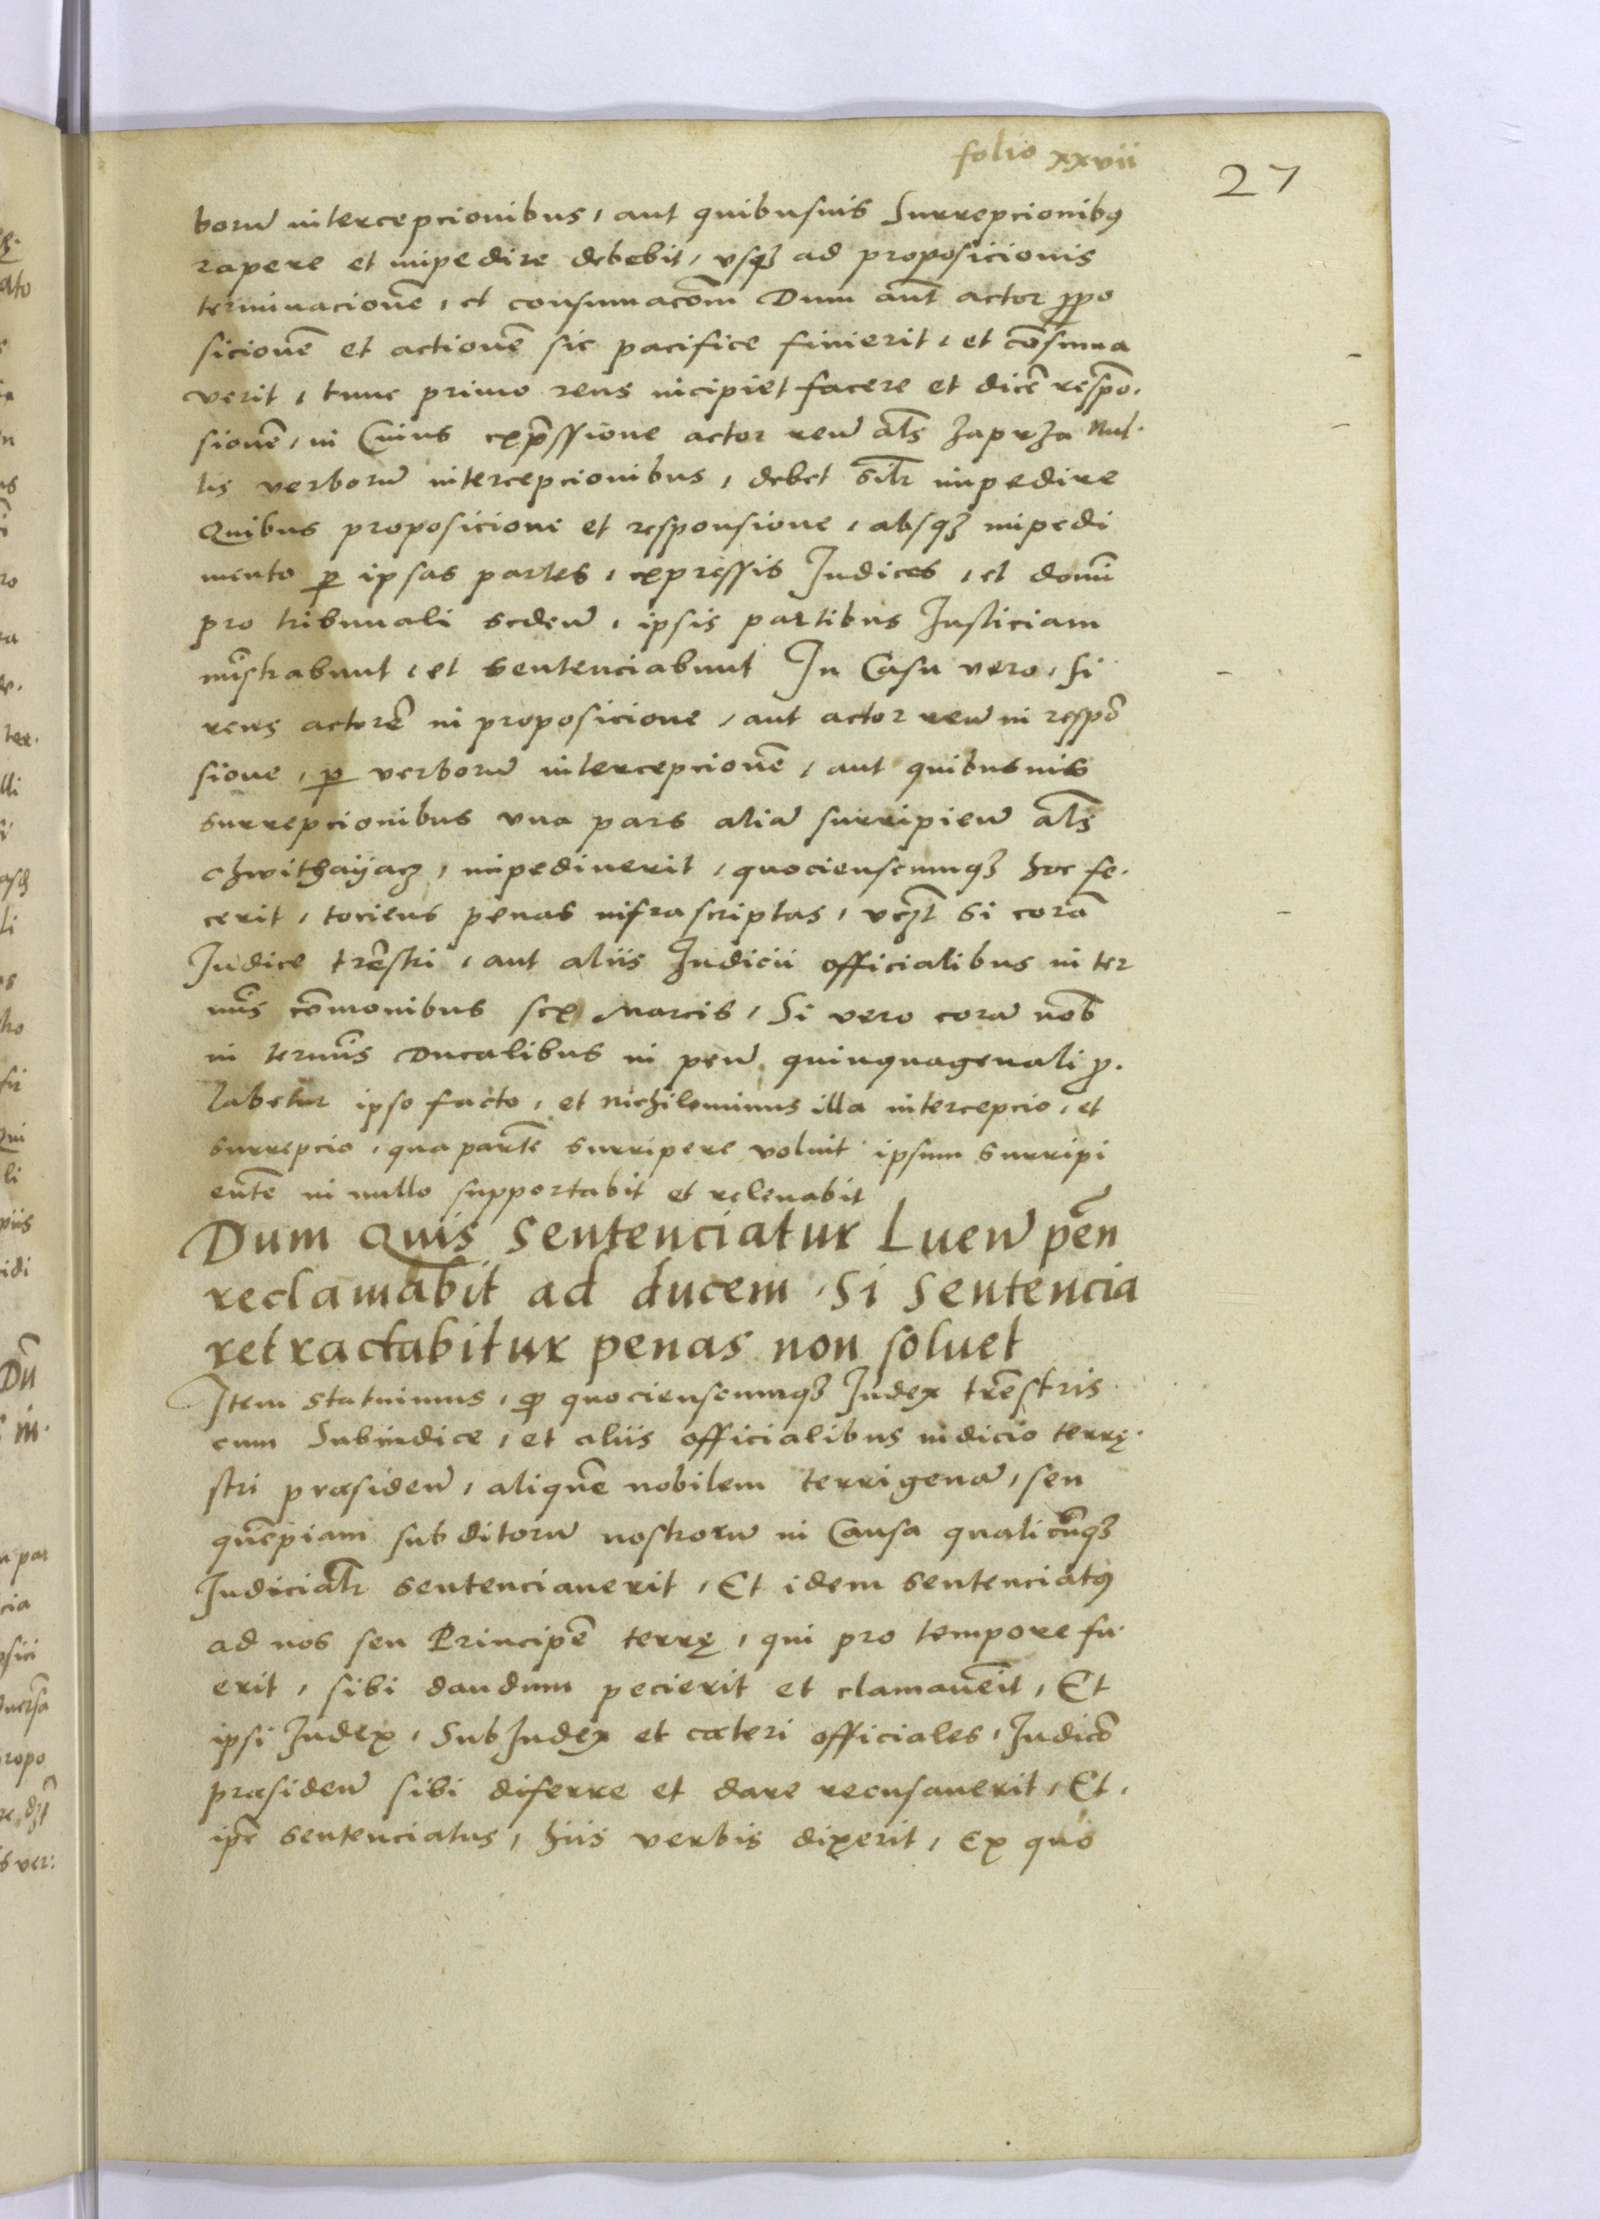 folio xxvii
27
borum intercepcionibus, aut quibusuis Surrepcionibus
rapere et impedire debebit, vsqꝫ ad proposicionis
terminacionē, et consumacōm Dum aut̄ actor ꝓpo
sicionē et actionē sic pacifice finierit, et cōsuma
verit, tunc primo reus incipiet facere et dicē respō.
sionē, in Cuius exp̄ssione actor reum al̄s zaprza nul.
lis verborum intercepcionibus, debet sil̄r impedire
Quibus proposicione et responsione, absqꝫ impedi
mento ꝑ ipsas partes, expressis Judices, et domī
pro tribunali seden̄, ipsis partibus Justiciam
mīstrabunt, et sentenciabunt In Casu vero, si
reus actorē in proposicione, aut actor reum in respō
sione, ꝑ verborum intercepcionē, aut quibusuis
surrepcionibus vna pars aliam surripien̄ al̄s
chwithayącz, impediuerit, quocienscumqꝫ hoc fe.
cerit, tociens penas infrascriptas, vꝫt si corā
Judice tr̄estri, aut aliis Judicii officialibus in ter
mīs cōmonibus sex Marcis, Si vero coram nob̄
in termīs Ducalibus in pen̄ quinquagenali ꝑ.
labetur ipso facto, et nichilominus illa intercepcio, et
surrepcio, qua partē surripere voluit ipsum surripi
entē in nullo supportabit et releuabit
Dum Quis sentenciatur Luen̄ pēn
reclamabit ad ducem, Si Sentencia
retractabitur penas non soluet
Item statuimus, ꝙ quocienscumqꝫ Judex tr̄estris
cum Subiudice, et aliis officialibus iudicio terrę.
stri præsiden̄, aliquē nobilem terrigenam, seu
quēpiam subditorum nostrorum in Causa qualicūqꝫ
Judicial̄r sentenciauerit, Et idem sentenciatus
ad nos seu Principē terrę, qui pro tempore fu.
erit, sibi dandum pecierit et clamauēit, Et
ipsi Judex, SubJudex et cæteri officiales, Judicō
præsiden̄ sibi diferre et dare recusauerit, Et,
ip̄e sentenciatus, hiis verbis dixerit, Ex quo